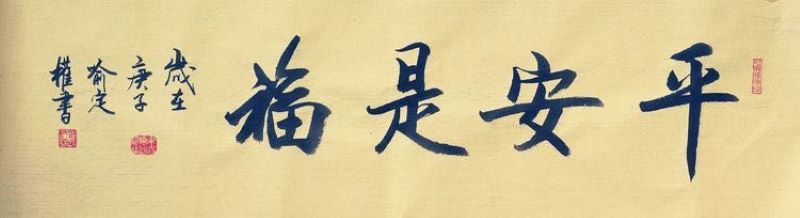 平安是福
歲在
庚子
喻定
權書